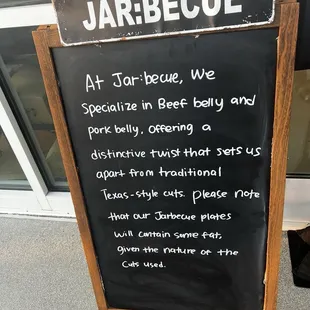 JAR:BECUE
At Jar:becue, We
Specialize in Beef belly and
pork belly, offering a
distinctive twist that sets us
apart from traditional
Texas-style cuts. please note
that our Jarbecue plates
Will contain some fat,
given the nature of the
Cuts used.